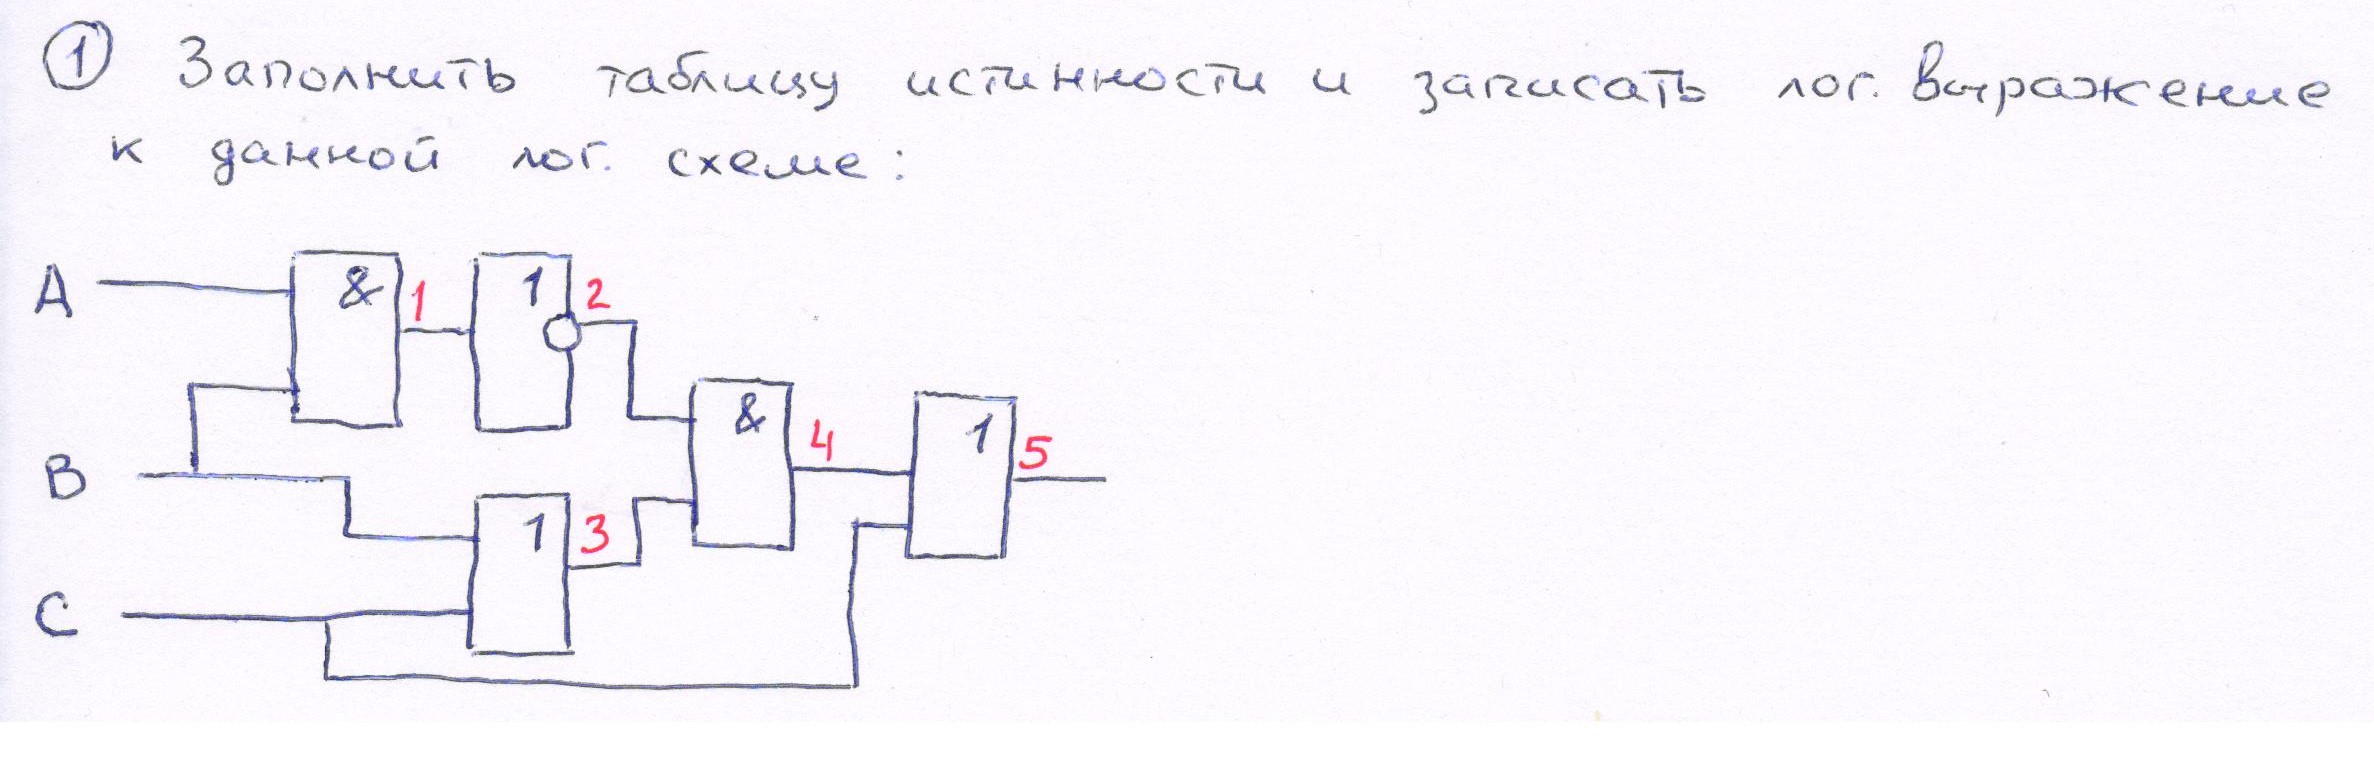 1 Заполнить таблицу истинности и записать лог. выражение
к данной лог. схеме:
A & 1 1 2
B & 4 1 5
1 3
C